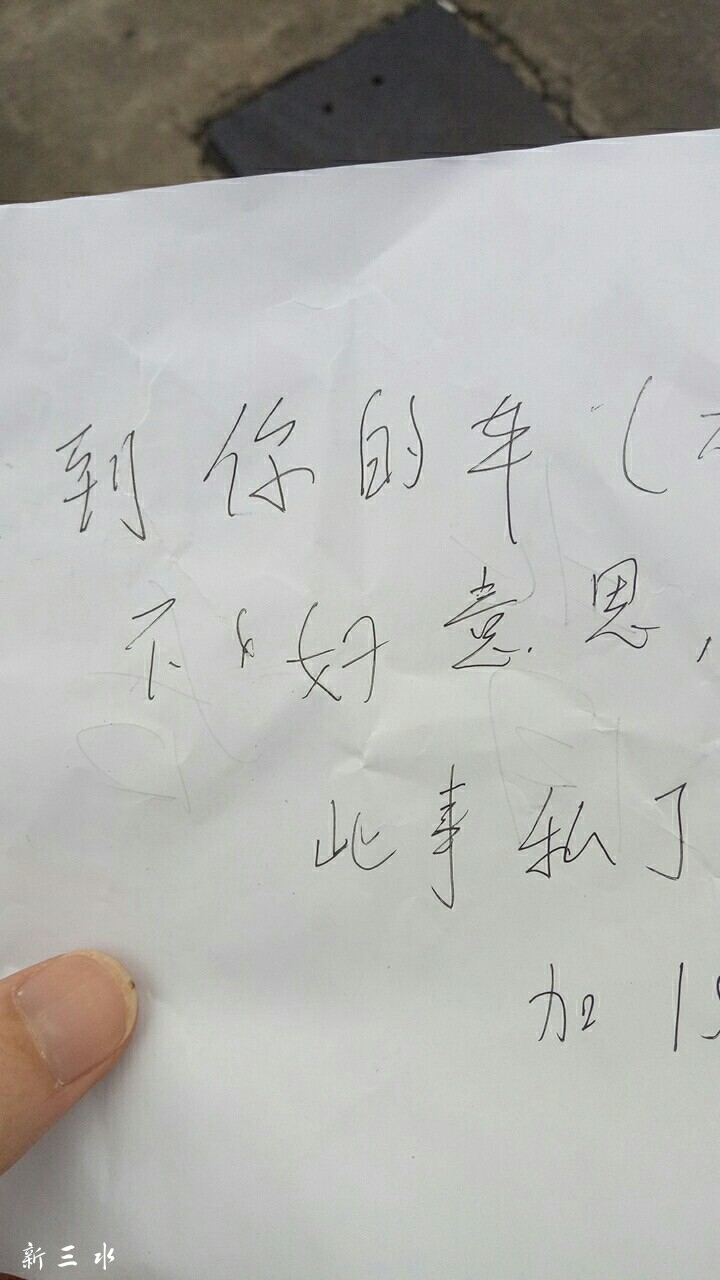 到你的车(
不好意思,
此事私了
加 15
新三水